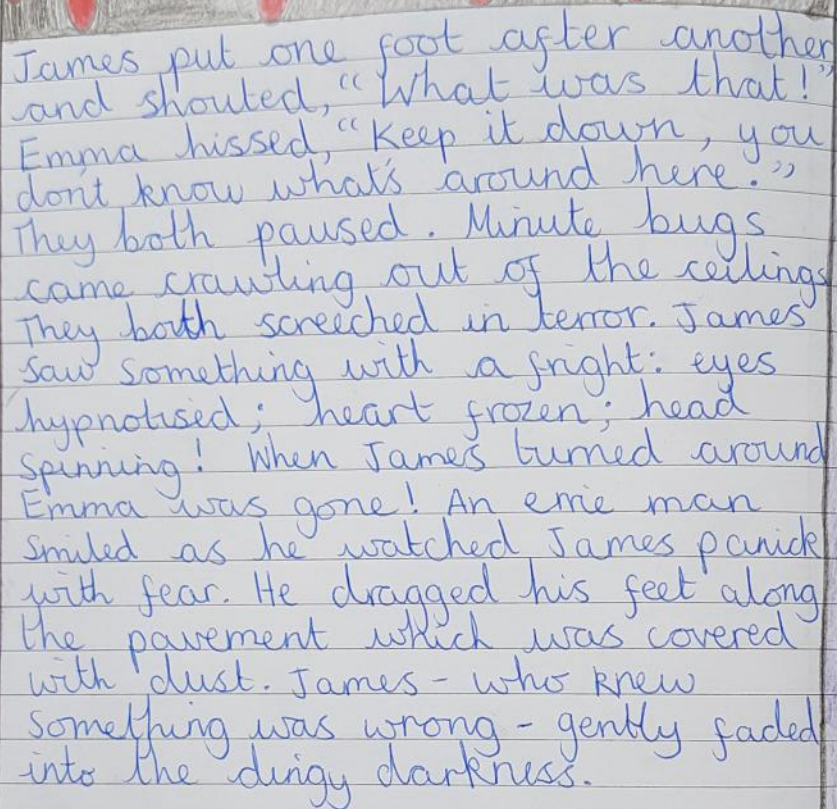 James put one foot after another
and shouted, "What was that!"
Emma hissed, "Keep it down, you
don't know what's around here."
They both paused. Minute bugs
came crawling out of the ceilings
They both screeched in terror. James
saw something with a fright: eyes
hypnotised; heart frozen; head
spinning! When James turned around
Emma was gone! An errie man
smiled as he watched James panick
with fear. He dragged his feet along
the pavement which was covered
with dust. James - who knew
something was wrong - gently faded
into the dingy darkness.